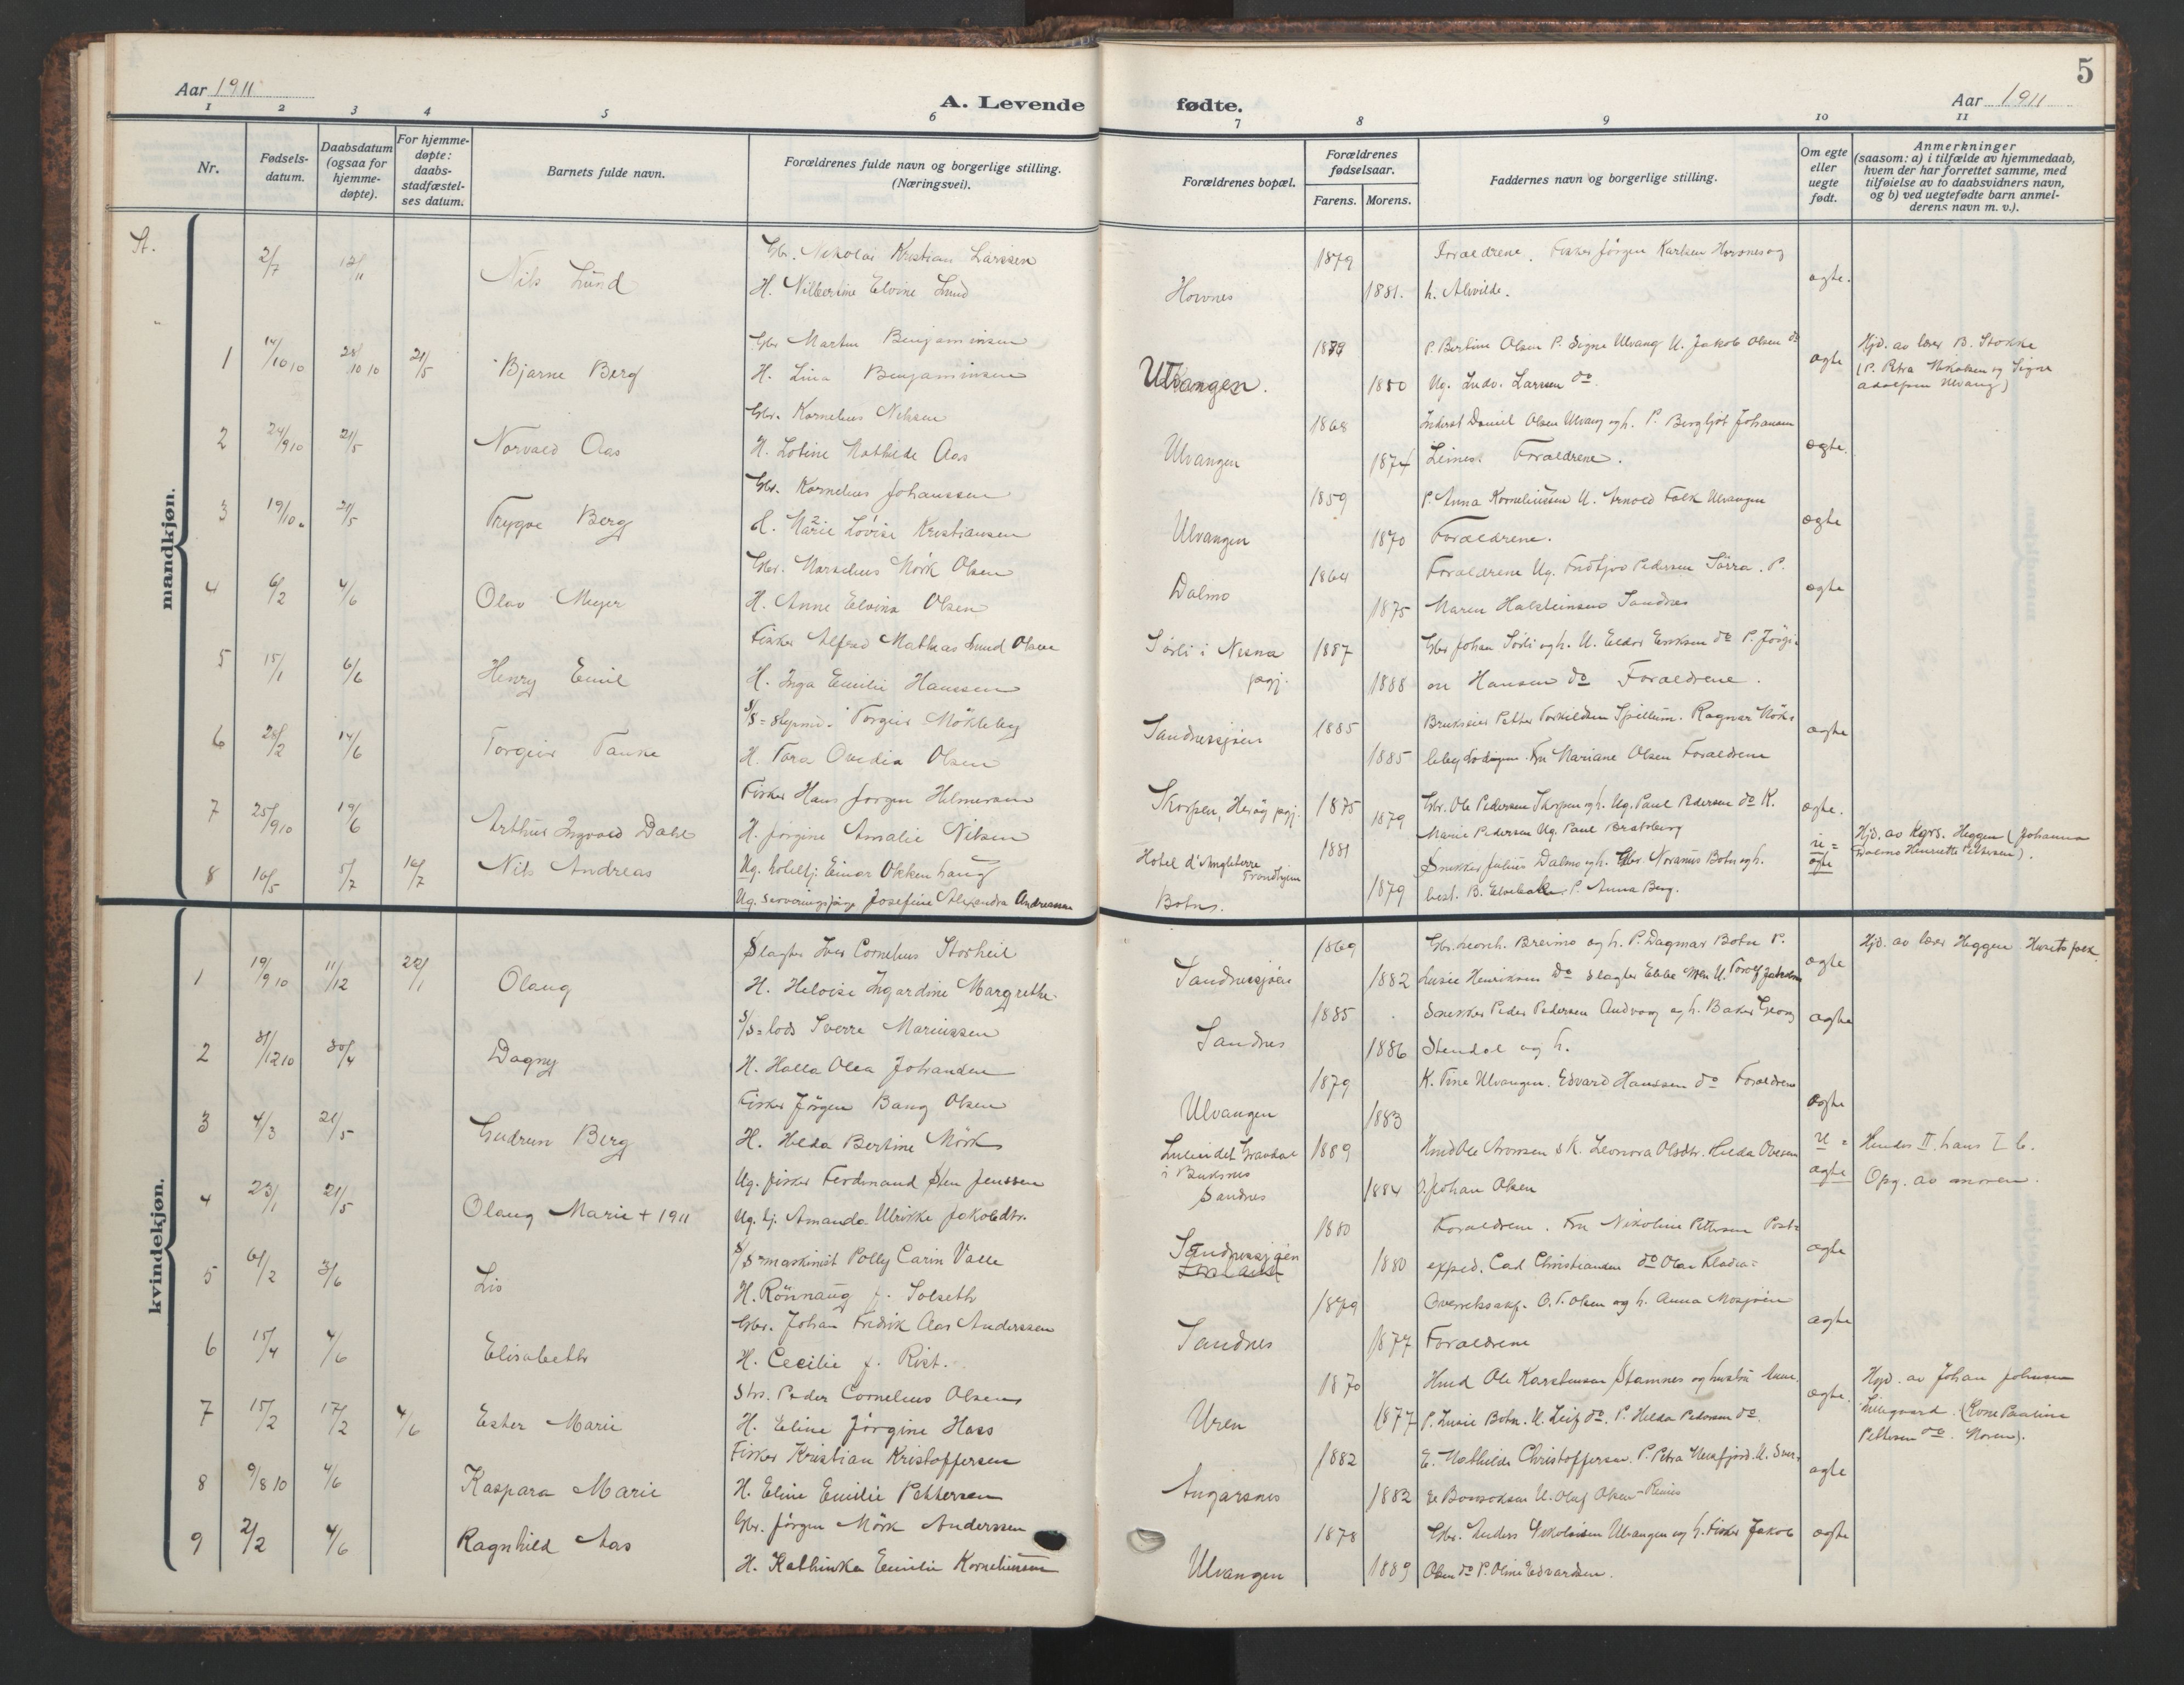 Aar 1911
A. Levende
1 2 3 4 5 6
Nr.
Fødsels-
datum.
Daabsdatum
(ogsaa for
hjemme-
døpte).
For hjemme-
døpte:
daabs-
stadfæstel-
ses datum.
Barnets fulde navn.
Forældrenes fulde navn og borgerlige stilling.
(Næringsvei).
mandkjøn.
Gbr. Nikolai Kristian Larssen
2/7 Nils Lund
H. Elvine Lund
Gbr Martin Benjaminsen
1 14/10 10 28/10 10 21/5 Bjarne Berg
H. Lina Benjaminsen
Gbr. Kornelius Nilssen
2 24/9 10 21/5 Norvald Aas
H. Lotine Mathilde Aas
Gbr. Kornelius Johanssen
3 21/5 Trygve Berg
H. Marie Lovise Kristiansen
Gbr. Marselius Mörk Olsen
4 6/2 4/6 Olav Meyer
H. Anne Elvina Olsen
Fisker Alfred Mathias Lund Olsen
5 15/1 6/6 Henry Emil
H. Inga Emilie Hanssen
S/S= Torgeir Mökleby
6 28/2 14/6 Torgeir Tanke
H. Tora Ovedia Olsen
Fisker Hans Jørgen Hilmersen
7 25/9 10 19/6 Arthur Ingvald Dahl
H. Jørgine Amalie Nilsen
8 16/5 5/7 16/7 Nils Andreas
Ug. hoteltj. Einar Okkenhaug
Ug. Josefine Alexandra Andreassen
kvindekjøn.
Slagter Iver Cornelius Storheil
1 19/9 10 11/12 22/1 Olaug
H. Heloise Ingardine Margrethe
S/S=lods Sverre Mariussen
2 31/12 10 30/4 Dagny
H. Halla Olea Johansen
Fisker Jørgen Bang Olsen
3 4/3 21/5 Gudrun Berg
H. Hilda Bertine Mörk
Ug. fisker Ferdinand Sten Jenssen
4 23/1 21/5 Olaug Marie + 1911
Ug. tj. Amanda Ulrikke Jakobdtr.
S/S=maskinist Polly Carin Valle
5 6/2 3/6 Liv
H. Rönnaug f. Solseth
Gbr. Johan Fredrik Aas Anderssen
6 15/4 4/6 Elisabeth
H. Cecilie f. Rist.
Str. Peder Cornelius Olsen
7 15/2 17/2 4/6 Ester Marie
H. Eline Jørgine Hass
Fisker Kristian Kristoffersen
8 9/8 10 4/6 Kaspara Marie
H. Eline Emilie Pettersen
Gbr. Jørgen Mörk Anderssen
9 2/2 4/6 Ragnhild Aas
H. Kathinka Emilie Korneliussen
5
fødte.
Aar 1911
7 8 9 10 11
Forældrenes bopæl.
Forældrenes
fødselsaar.
Farens. Morens.
Faddernes navn og borgerlige stilling.
Om egte
eller
uegte
født.
Anmerkninger
(saasom: a) i tilfælde av hjemmedaab,
hvem der har forrettet samme, med
tilføielse av to daabsvidners navn,
og b) ved uegtefødte barn anmel-
derens navn m. v.).
1879 Forældrene. Fisker Jørgen Karlsen og
Hovnes 1881. h. Alvilde. ægte.
P. Bertine Olsen P. Signe Ulvang U. Jakob Olsen do
Ulvangen. 1880 Ug. Ludv. Larssen do ægte
Hjd. av lærer B. Stokke
(P. Petra Nikolaisen og Signe
Ulvang)
1868 Inderst Daniel Olsen Ulvang og h. P. Bergljot Johansen
Ulvangen 1874 Leines. Forældrene. ægte.
1859 P. Anna Korneliussen U. Arnold Falk Ulvangen
Ulvangen 1870 Forældrene. ægte
1864 Forældrene Ug. Pedersen P.
Dalmo 1875 Maren Halsteinsen Sandnes ægte
Sörli i Nesna 1887 Gbr Johan Sörli og h. U. Eriksen do P.
pgj. 1888 Hansen do Forældrene.
1885 Brukseier Petter Torkildsen Spillum. Ragnar
Sandnessjøen 1885 Fru Mariane Olsen Forældrene ægte
Skorpen, Herøy pgj. 1875 Gbr. Ole Pedersen Skorpen og h. Ug. Paul Pedersen do K.
1879 Marie Pedersen Ug. Paul Bratsberg ægte.
Hotel d'Angleterre Trondhjem 1881 Snekker Julius Dalmo og h. Gbr. Botn og h.
Botn. 1879 best. B. P. Anna Berg. u=ægte
Hjd. av Heggen (Johanna
Dalmo Henriette Pettersen).
1869 Gbr. Breimo og h. P. Dagmar Botn P.
Sandnessjøen 1882 Lusie Henriksen do Slagter ægte
Hjd. av lærer Heggen Husets folk
1885 Snekker Peder Pedersen og h. Baker Georg
Sandnes 1886 Stendal og h. ægte
1879 K. Tine Ulvangen. Edvard Hanssen do Forældrene
Ulvangen 1883 ægte
1889 Ole Aronsen K. Leonora Olsdtr. Hilda Ovesen
i Buksnes
Sandnes 1884 Johan Olsen u=ægte
Hendes II, hans I b.
Opg. av moren.
1880 Forældrene. Fru Nikoline Pettersen Post=
Sandnessjøen 1880 exped. Christiansen do
1879 O. T. Olsen og h. Anna Mosjøen ægte
Sandnes 1877 Forældrene ægte
1870 Ole Karstensen Stamnes og hustru
Uren 1877 P. Lusie Botn. U. Leif do. P. Hilda Pedersen do. ægte.
Hjd. av Johan Johnsen
(Kone Pauline
Pettersen do. Moren).
1882 E. Mathilde Christoffersen. P. Petra U.
Angarsnes 1882 U. Olaf Olsen ægte
1878 Gbr. Anders Nikolaisen Ulvangen og h. Fisker Jakob
Ulvangen 1889 Olsen do P. Oline Edvardsen. ægte